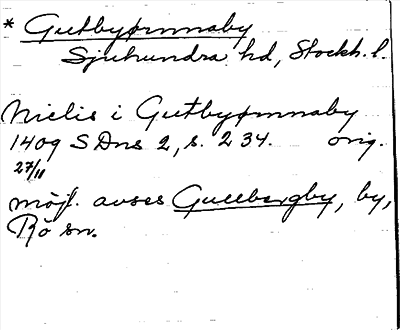 * Gutbyømnaby
Sjuhundra hd, Stockh. l.
Nielis i Gutbyømnaby
1409 SDns 2, s. 234. orig.
27/11
möjl. avses Gullbergby, by,
Rö sn.